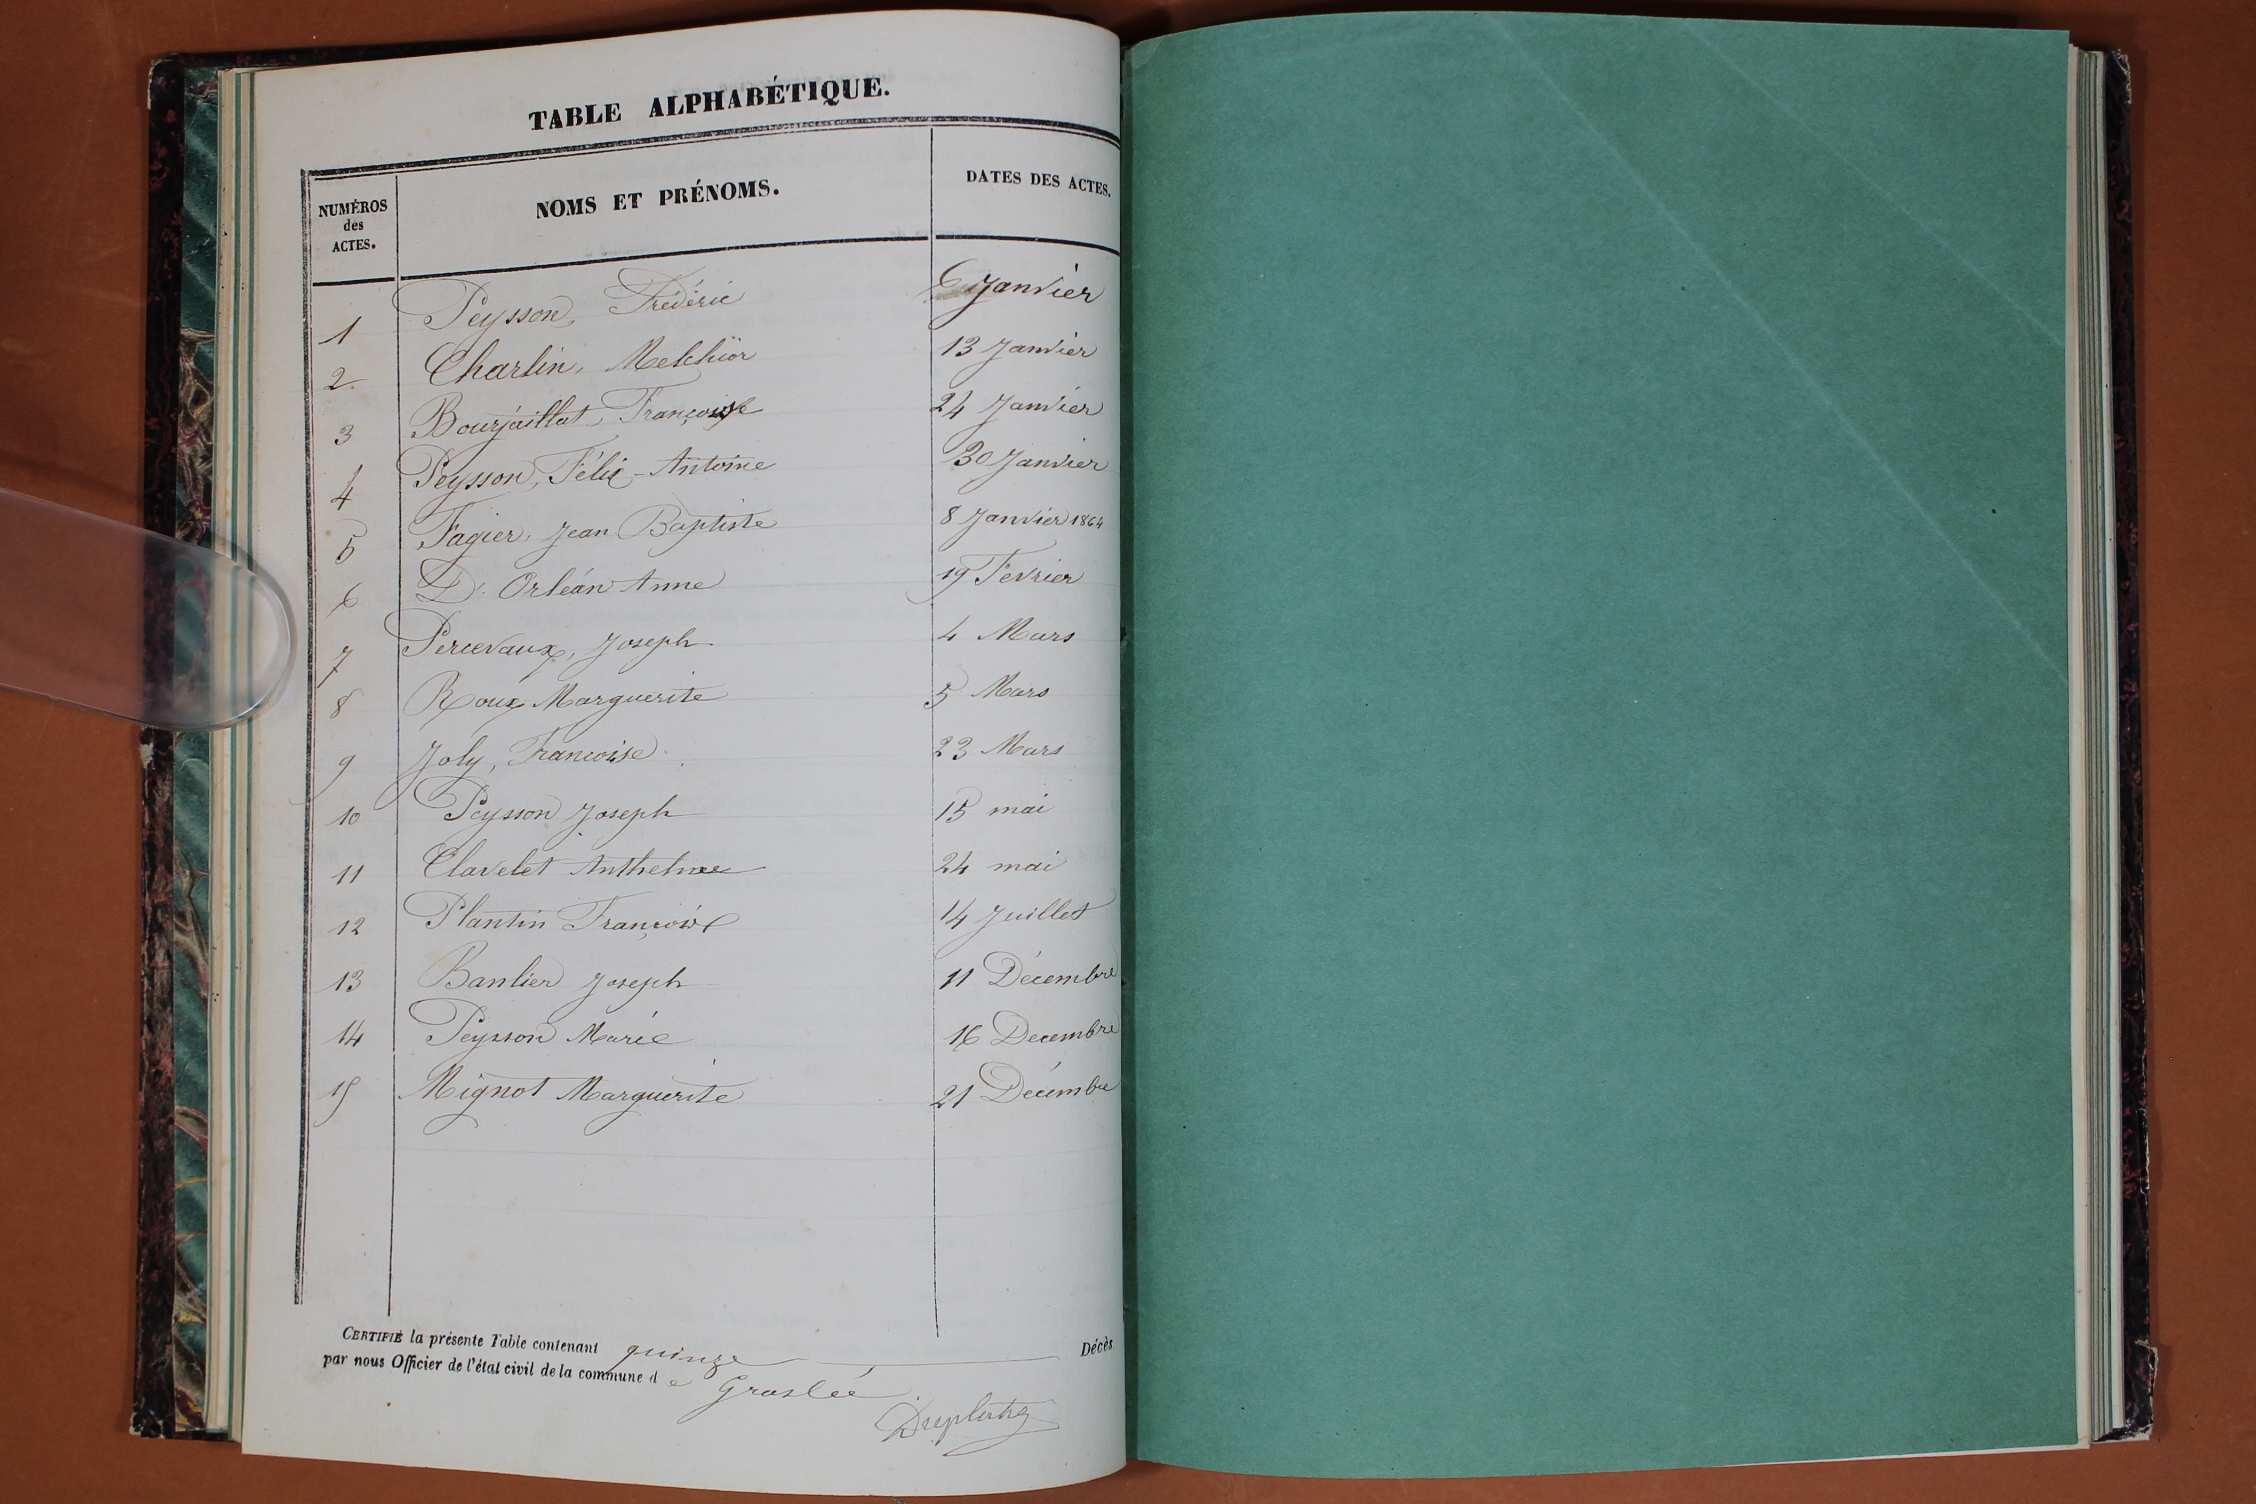 TABLE ALPHABÉTIQUE.
NUMÉROS des ACTES. NOMS ET PRÉNOMS. DATES DES ACTES.
1 Peysson, Frédéric 6 Janvier
2 Charlin, Melchior 13 Janvier
3 Bourjaillat, Françoise 24 Janvier
4 Peysson, Félix-Antoine 30 Janvier
5 Fagier, Jean Baptiste 8 Janvier 1864
6 D'Orléan Anne 19 Fevrier
7 Percevaux, Joseph 4 Mars
8 Roux Marguerite 5 Mars
9 Joly, Francoise 23 Mars
10 Peysson Joseph 15 mai
11 Clavelet Anthelme 24 mai
12 Plantin François 14 Juillet
13 Banlier Joseph 11 Décembre
14 Peysson Marie 16 Decembre
15 Mignot Marguerite 21 Décembre
CERTIFIÉ la présente Table contenant quinze Décès
par nous Officier de l'état civil de la commune de Groslée